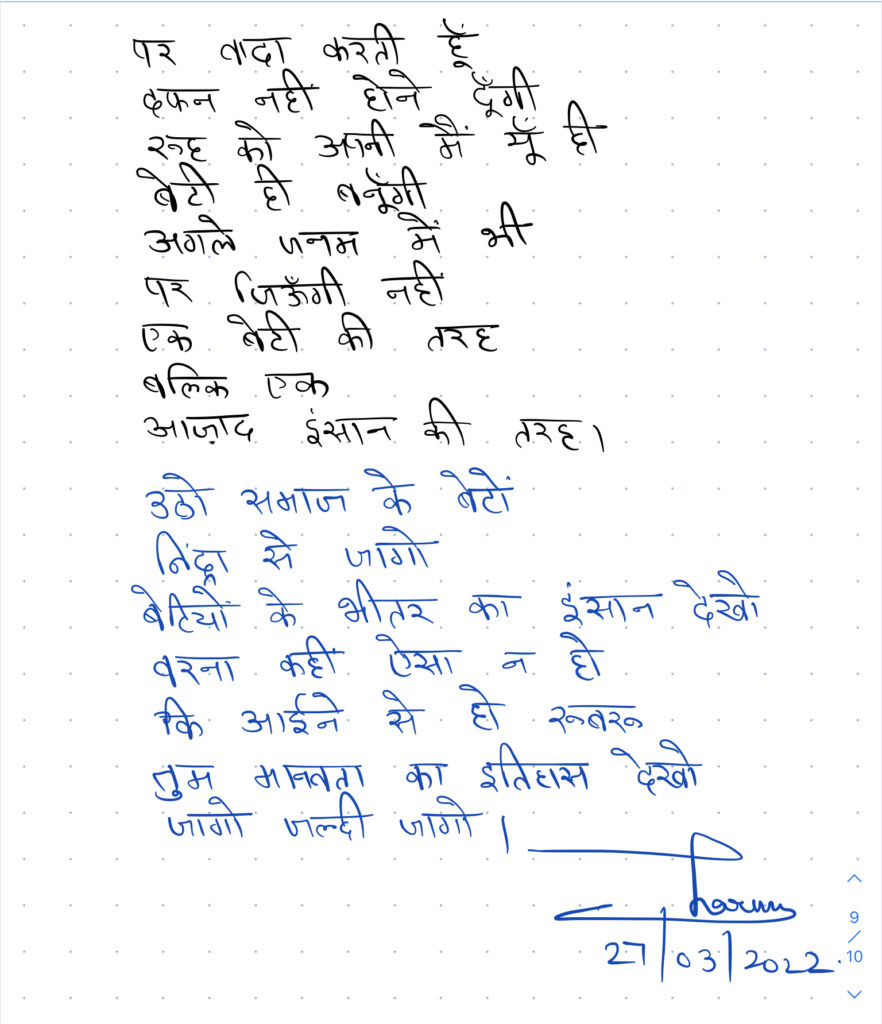 पर वादा करती हूँ
दफन नहीं होने दूँगी
रूह को अपनी मैं यूँ ही
बेटी ही बनूँगी
अगले जनम में भी
पर जिऊँगी नहीं
एक बेटी की तरह
बल्कि एक
आज़ाद इंसान की तरह।
उठो समाज के बेटों
निंद्रा से जागो
बेटियों के भीतर का इंसान देखो
वरना कहीं ऐसा न हो
कि आईने से हो रूबरू
तुम मानवता का इतिहास देखो
जागो जल्दी जागो।
27/03/2022.
9
/
10